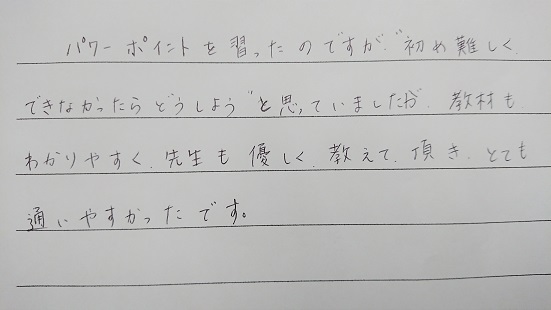 パワーポイントを習ったのですが、"初め難しく、
できなかったらどうしよう"と思っていましたが、教材も、
わかりやすく、先生も優しく、教えて、頂き、とても
通いやすかったです。